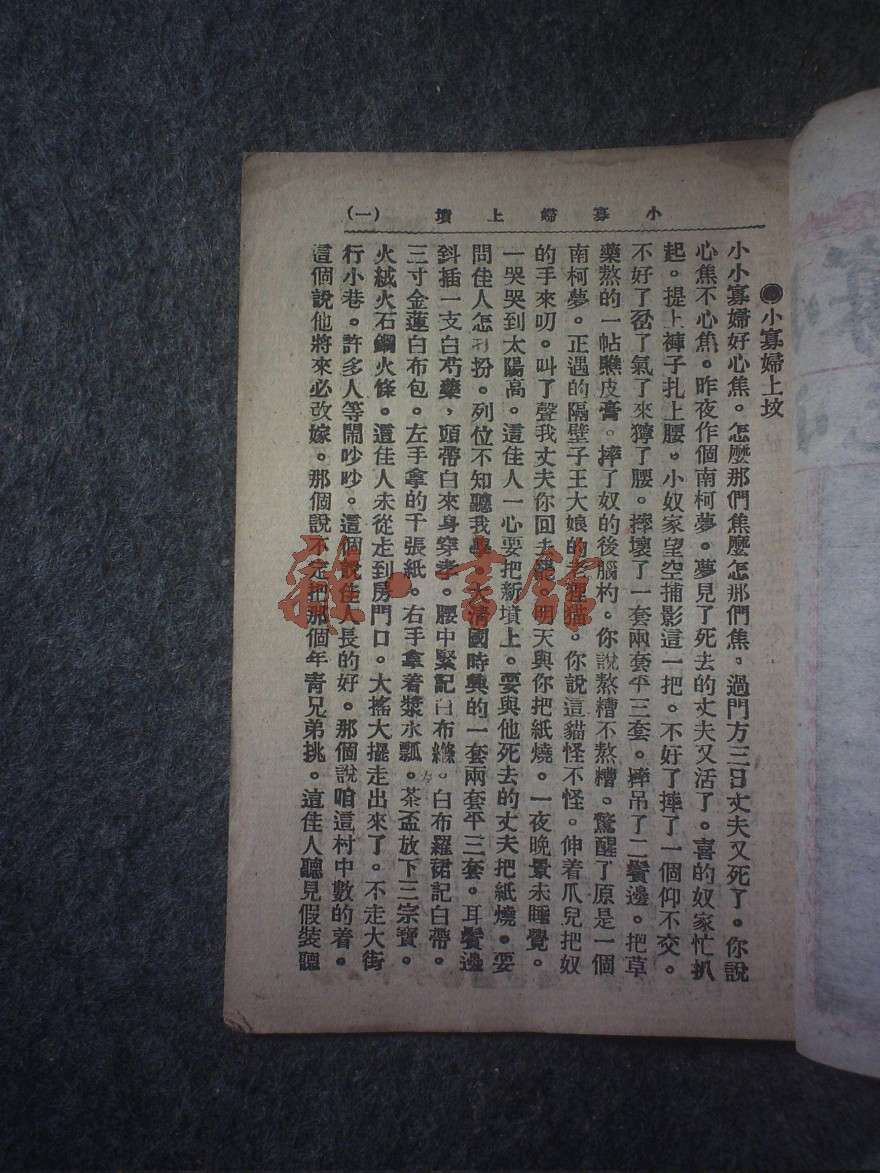 小寡婦上墳 (一)
●小寡婦上坟
小小寡婦好心焦。怎麼那們焦麼怎那們焦，過門方三日丈夫又死了。你說
心焦不心焦。昨夜作個南柯夢。夢見了死去的丈夫又活了。喜的奴家忙扒
起。提上褲子扎上腰。小奴家望空捕影這一把。不好了摔了一個仰不交。
不好了岔了氣了來獰了腰。摔壞了一套兩套平三套。摔吊了二鬢邊。把草
藥熬的一帖皮膏。摔了奴的後腦杓。你說熬糟不熬糟。驚醒了原是一個
南柯夢。正遇的隔壁子王大娘的老狸猫。你說這貓怪不怪。伸着爪兒把奴
的手來叨。叫了聲我丈夫你回去罷。明天與你把紙燒。一夜晚景未睡覺。
一哭哭到太陽高。這佳人一心要把新墳上。要與他死去的丈夫把紙燒。要
問佳人怎扮。列位不知聽我學。大清國時興的一套兩套平三套。耳鬢邊
斜插一支白芍藥，頭帶白來身穿孝。腰中緊記白布縧。白布羅裙記白帶。
三寸金蓮白布包。左手拿的千張紙。右手拿着漿水瓢。茶盃放下三宗寶。
火絨火石鋼火條。這佳人未從走到房門口。大搖大擺走出來了。不走大街
行小巷。許多人等鬧吵吵。這個說佳人長的好。那個說咱這村中數的着。
這個說他將來必改嫁。那個說不定把那個年靑兄弟挑。這佳人聽見假裝聽
雜·書館